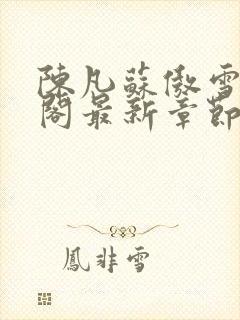 陳凡蘇傲雪
閣最新章節
鳳非雪